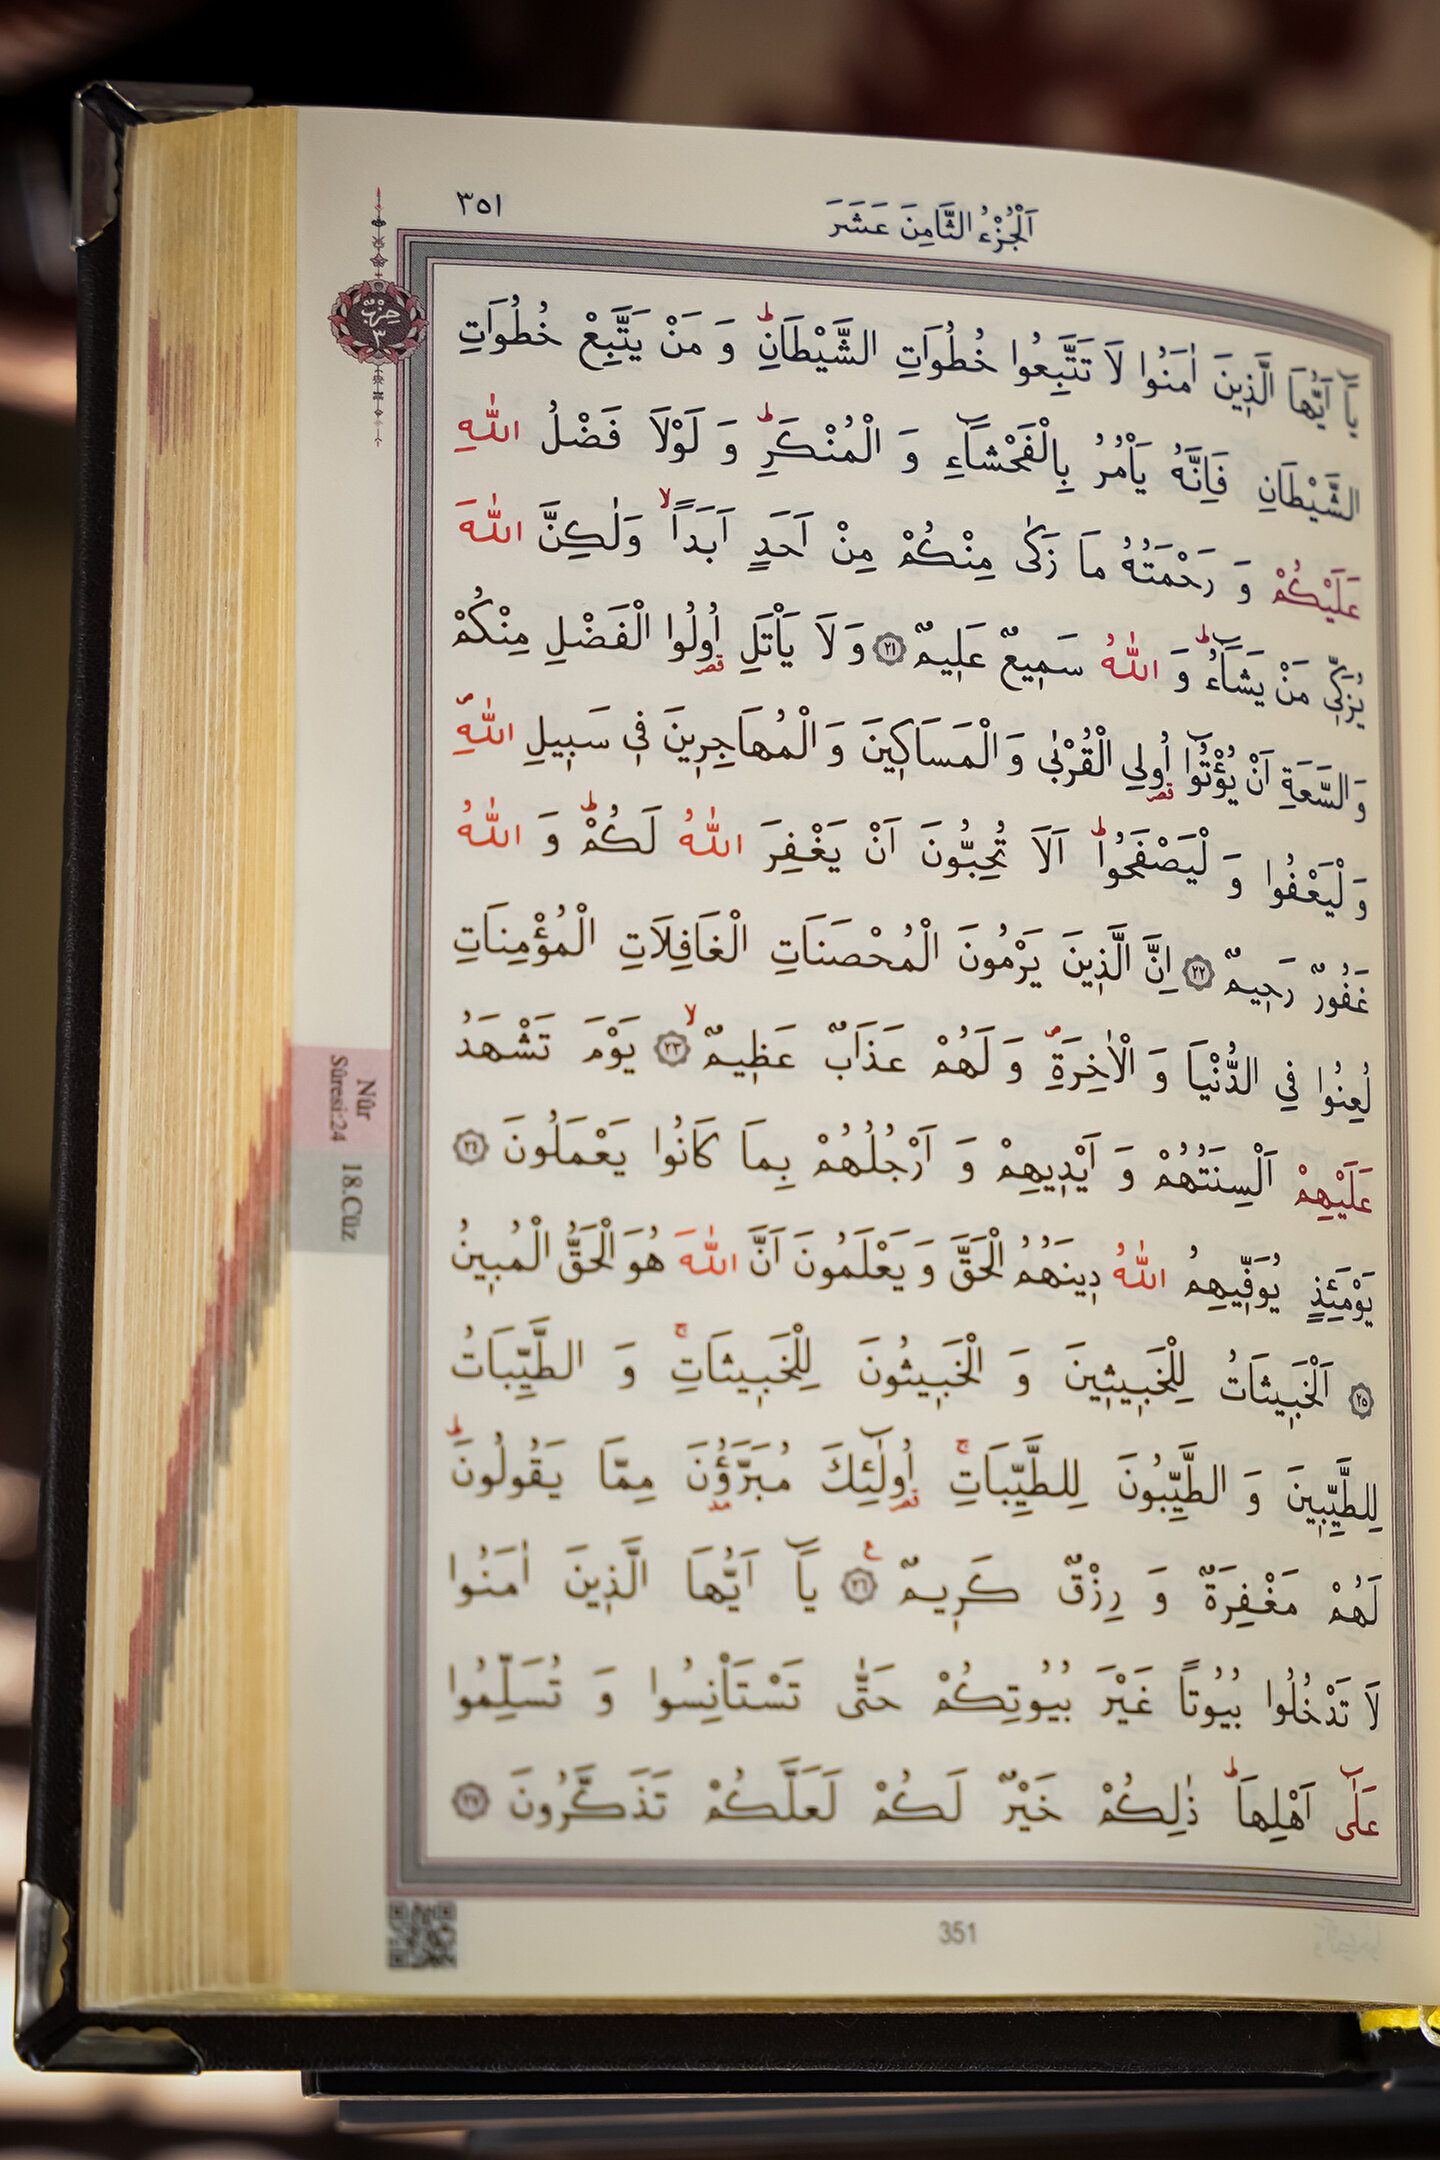 ٣٥١
اَلْجُزْءُ الثَّامِنَ عَشَرَ
حِزْبٌ
٣
يَٓا اَيُّهَا الَّذٖينَ اٰمَنُوا لَا تَتَّبِعُوا خُطُوَاتِ الشَّيْطَانِؕ وَ مَنْ يَتَّبِعْ خُطُوَاتِ
الشَّيْطَانِ فَاِنَّهُ يَاْمُرُ بِالْفَحْشَٓاءِ وَ الْمُنْكَرِؕ وَ لَوْلَا فَضْلُ اللّٰهِ
عَلَيْكُمْ وَ رَحْمَتُهُ مَا زَكٰى مِنْكُمْ مِنْ اَحَدٍ اَبَداًۙ وَلٰكِنَّ اللّٰهَ
يُزَكّٖى مَنْ يَشَٓاءُؕ وَ اللّٰهُ سَمٖيعٌ عَلٖيمٌ ﴿٢١﴾ وَ لَا يَاْتَلِ اُو۬لُوا الْفَضْلِ مِنْكُمْ
وَ السَّعَةِ اَنْ يُؤْتُٓوا اُو۬لِي الْقُرْبٰى وَ الْمَسَاكٖينَ وَ الْمُهَاجِرٖينَ فٖي سَبٖيلِ اللّٰهِۖ
وَ لْيَعْفُوا وَ لْيَصْفَحُواؕ اَلَا تُحِبُّونَ اَنْ يَغْفِرَ اللّٰهُ لَكُمْؕ وَ اللّٰهُ
غَفُورٌ رَحٖيمٌ ﴿٢٢﴾ اِنَّ الَّذٖينَ يَرْمُونَ الْمُحْصَنَاتِ الْغَافِلَاتِ الْمُؤْمِنَاتِ
لُعِنُوا فِي الدُّنْيَا وَ الْاٰخِرَةِۖ وَ لَهُمْ عَذَابٌ عَظٖيمٌۙ ﴿٢٣﴾ يَوْمَ تَشْهَدُ
عَلَيْهِمْ اَلْسِنَتُهُمْ وَ اَيْدٖيهِمْ وَ اَرْجُلُهُمْ بِمَا كَانُوا يَعْمَلُونَ ﴿٢٤﴾
يَوْمَئِذٍ يُوَفّٖيهِمُ اللّٰهُ دٖينَهُمُ الْحَقَّ وَ يَعْلَمُونَ اَنَّ اللّٰهَ هُوَ الْحَقُّ الْمُبٖينُ
﴿٢٥﴾ اَلْخَبٖيثَاتُ لِلْخَبٖيثٖينَ وَ الْخَبٖيثُونَ لِلْخَبٖيثَاتِۚ وَ الطَّيِّبَاتُ
لِلطَّيِّبٖينَ وَ الطَّيِّبُونَ لِلطَّيِّبَاتِۚ اُو۬لٰٓئِكَ مُبَرَّؤُ۫نَ مِمَّا يَقُولُونَؕ
لَهُمْ مَغْفِرَةٌ وَ رِزْقٌ كَرٖيمٌ ﴿٢٦﴾ع يَٓا اَيُّهَا الَّذٖينَ اٰمَنُوا
لَا تَدْخُلُوا بُيُوتاً غَيْرَ بُيُوتِكُمْ حَتّٰى تَسْتَاْنِسُوا وَ تُسَلِّمُوا
عَلٰٓى اَهْلِهَاؕ ذٰلِكُمْ خَيْرٌ لَكُمْ لَعَلَّكُمْ تَذَكَّرُونَ ﴿٢٧﴾
Nûr
Sûresi:24
18.Cüz
351